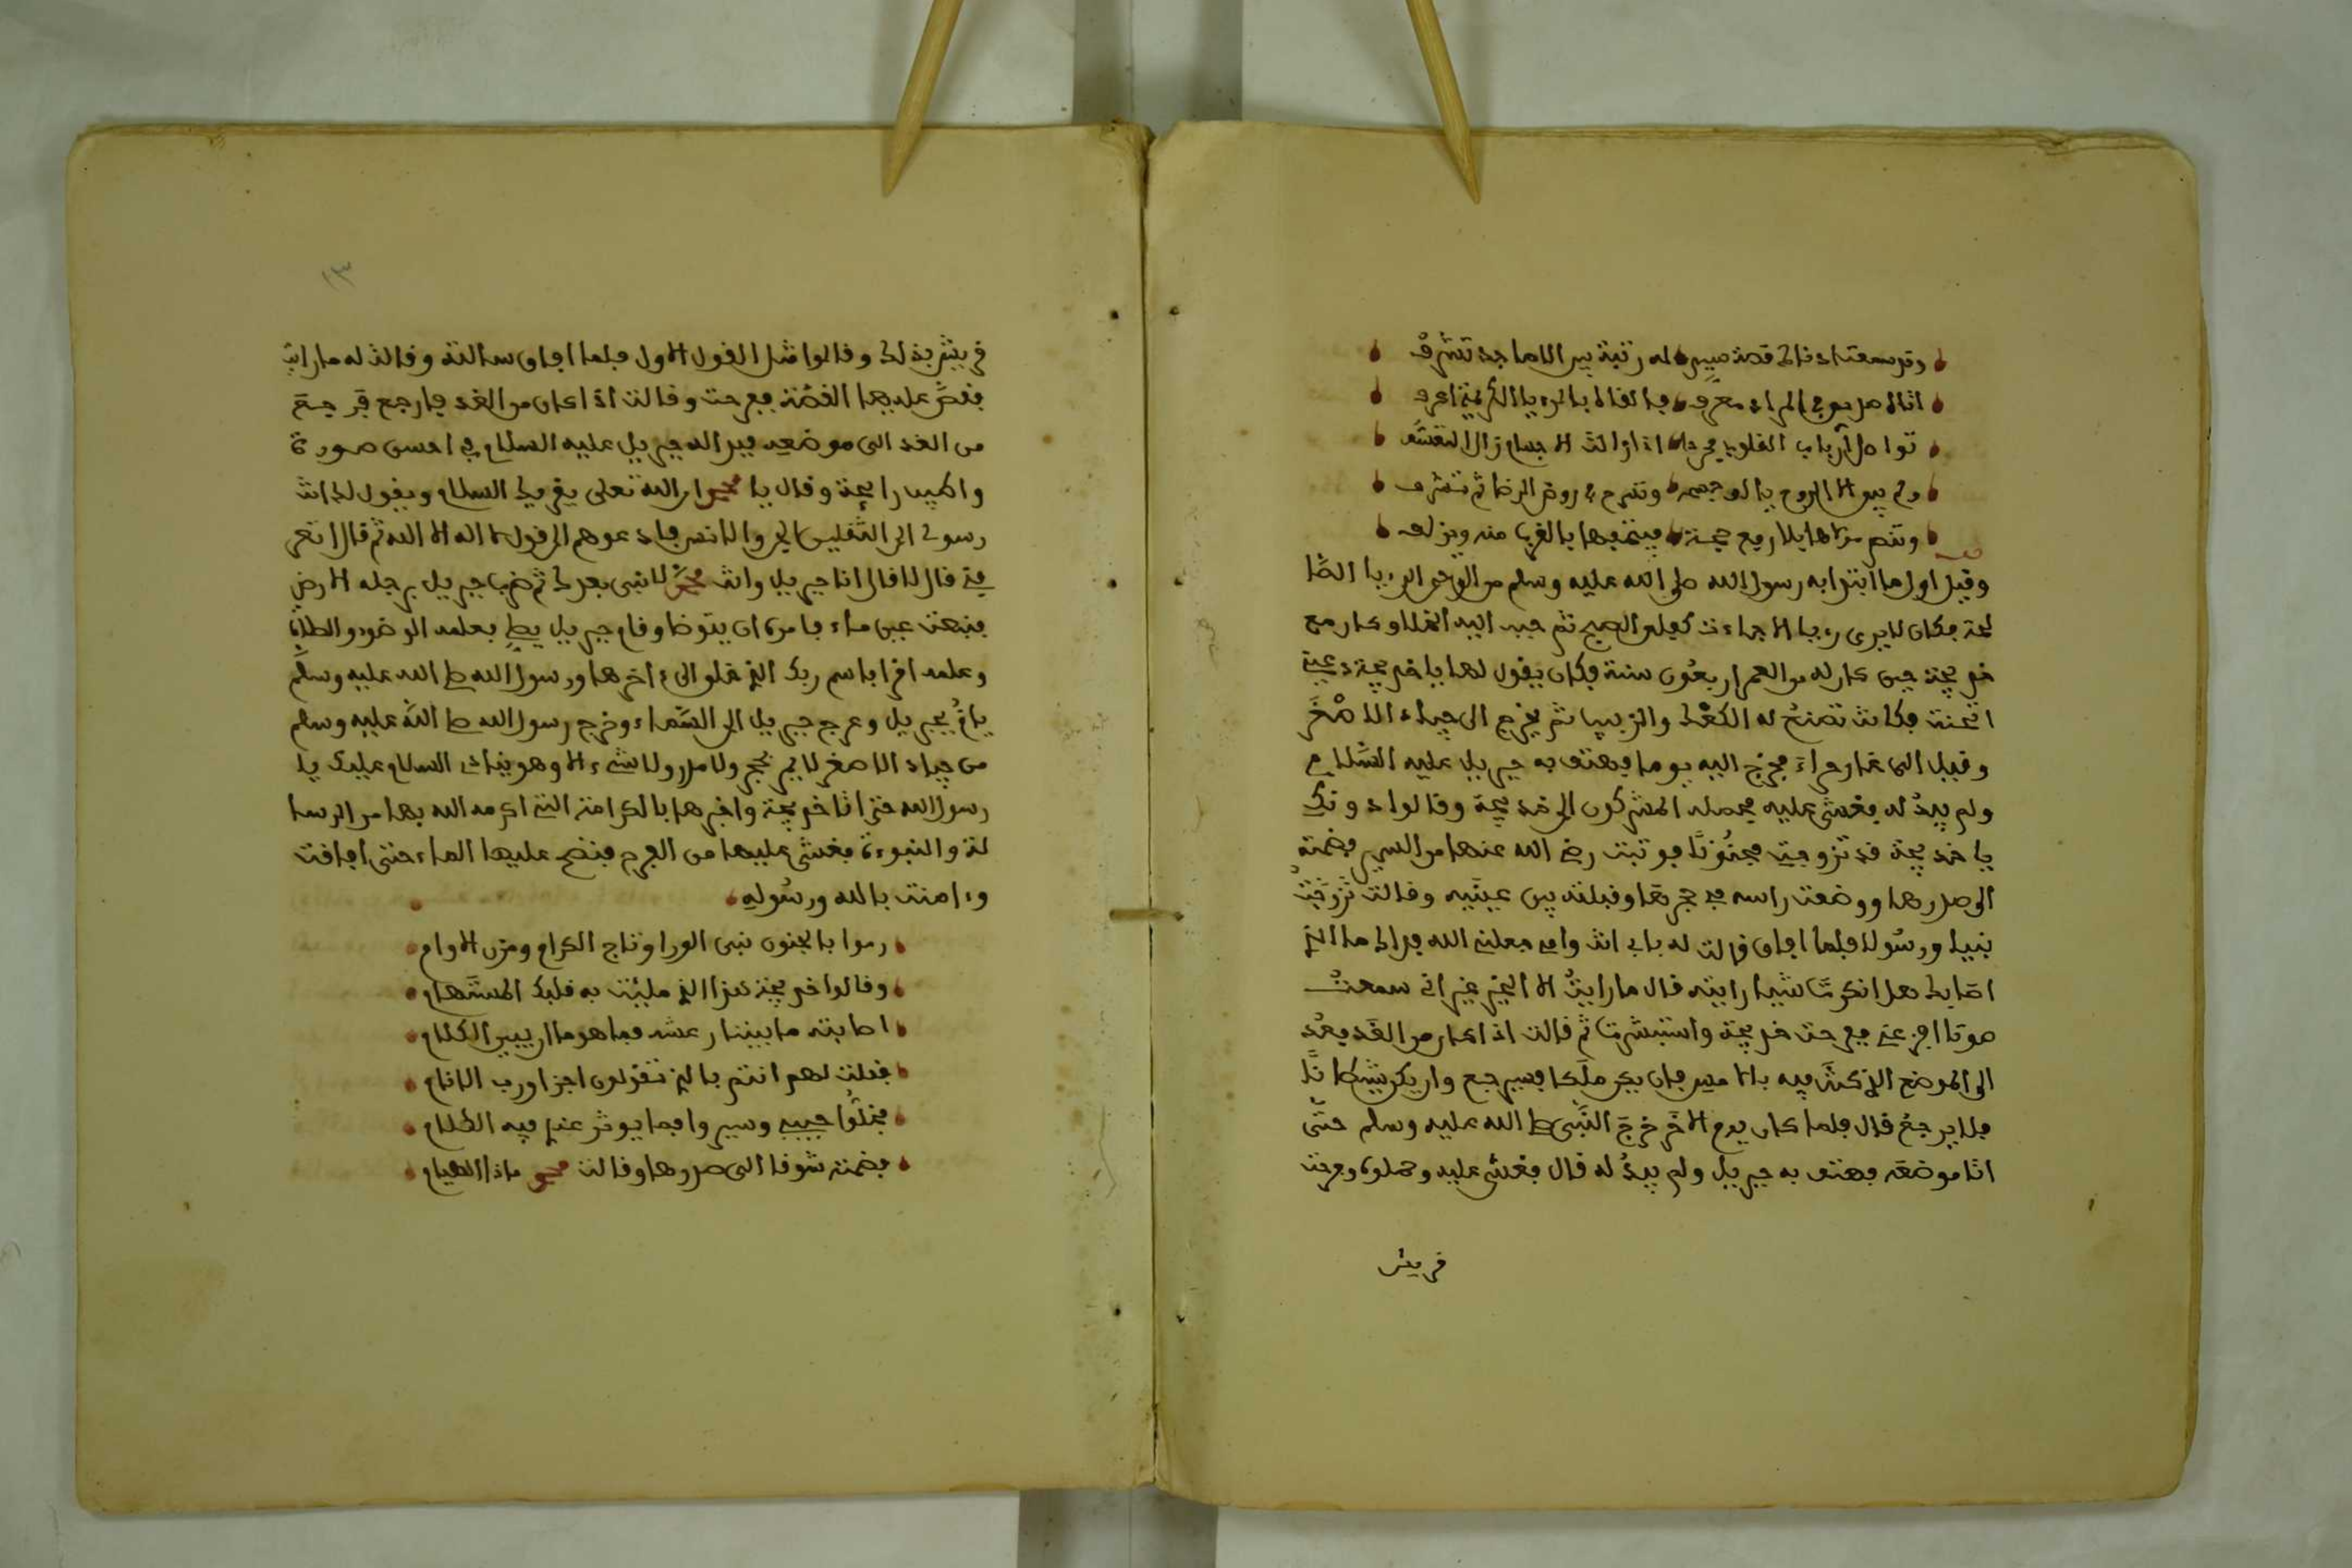 وقد سمعت اذناك قصة ميسر له رتبة بين الاماجد تشرف
اتاك
تواصل ارباب القلوب اذا زالت الاجسام زال التقشف
ولم يبق الا الروح يالو وتسرح في روض الرضا ثم تشرف
وقيل اول ما ابتدا به رسول الله صلى الله عليه وسلم من الوحي الرءيا الصا
لحة فكان لا يرى رءيا الا جاءت كفلق الصبح ثم حبب اليه الخلاء وكان مع
خديجة حين كان له من العمر اربعون سنة فكان يقول لها يا خديجة دعيني
اتحنث فكانت تصنع له الكعك والزبيب ثم يخرج الى جياد الاصغر
وقيل الى غار حراء فخرج اليه يوما فهتف به جبريل عليه السلام
ولم يبد له فغشي عليه فحمله المشركون الى خديجة وقالوا دونك
يا خديجة قد تزوجت مجنونا فوثبت رضي الله عنها من السرير فضمته
الى صدرها ووضعت راسه في حجرها وقبلته بين عينيه وقالت تزوجت
نبيا ورسولا فلما افاق قالت له بابي انت وامي جعلني الله فداك ما الذي
اصابك هل انكرت شيئا رايته قال ما رايت الا الخير غير اني سمعت
صوتا افزعني ففرحت خديجة واستبشرت ثم قالت اذا كان من الغد فعد
الى الموضع الذي كنت فيه بالامس فان يكن ملكا فسيرجع وان يكن شيطانا
فلا يرجع قال فلما كان يوم الاخر خرج النبي صلى الله عليه وسلم حتى
اتا موضعه فهتف به جبريل ولم يبد له قال فغشي عليه وحملوه ومرت
قريش
١٣
قريش بذلك وقالوا مثل القول الاول فلما افاق سالته وقالت له ما رايت
فقص عليها القصة ففرحت وقالت اذا كان من الغد فارجع فرجع
من الغد الى موضعه فبدا له جبريل عليه السلام في احسن صورة
واطيب رايحة وقال يا محمد ان الله تعلى يقريك السلام ويقول لك انت
رسولي الى الثقلين الجن والانس فادعوهم الى قول لا اله الا الله ثم قال اتعر
فني قال لا قال انا جبريل وانت محمد لا نبي بعدك ثم ضرب جبريل برجله الارض
فنبعت عين ماء فامره ان يتوضا وقام جبريل يصلي فعلمه الوضوء والصلاة
وعلمه اقرا باسم ربك الذي خلق الى ءاخرها ورسول الله صلى الله عليه وسلم
ياتم بجبريل وعرج جبريل الى السماء وخرج رسول الله صلى الله عليه وسلم
من جياد الاصغر لا يمر بحجر ولا مدر ولا شيء الا وهو ينادي السلام عليك يا
رسول الله حتى اتا خديجة واخبرها بالكرامة التي اكرمه الله بها من الرسا
لة والنبوءة فغشي عليها من الفرح فنضح عليها الماء حتى افاقت
وءامنت بالله ورسوله
رموا بالجنون نبي الورا وتاج الكرام ومزن الاوام
وقالوا خديجة هذا الذي مليت به قلبك المستهام
اصابته ما بيننا رعشة فما هو ما ان يبين الكلام
فقلت لهم انتم بالذي تقولون اجزا ورب الانام
فخلوا حبيبي وسيروا فما يوثر عندي فيه الكلام
فضمته شوقا الى صدرها وقالت محمد ماذا الهيام